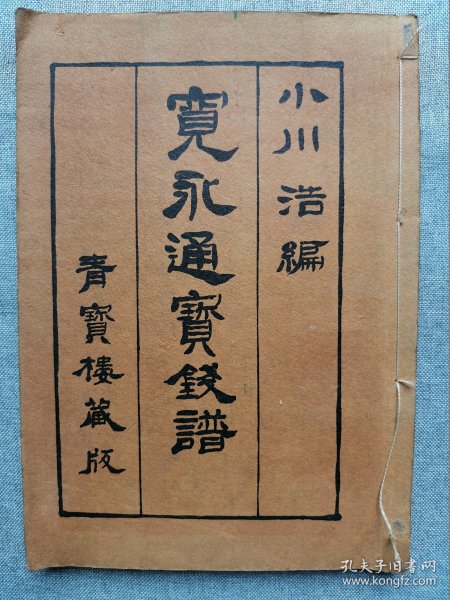 小川浩編
寛永通寳錢譜
青寳樓藏版
孔夫子旧书网
www.kongfz.com